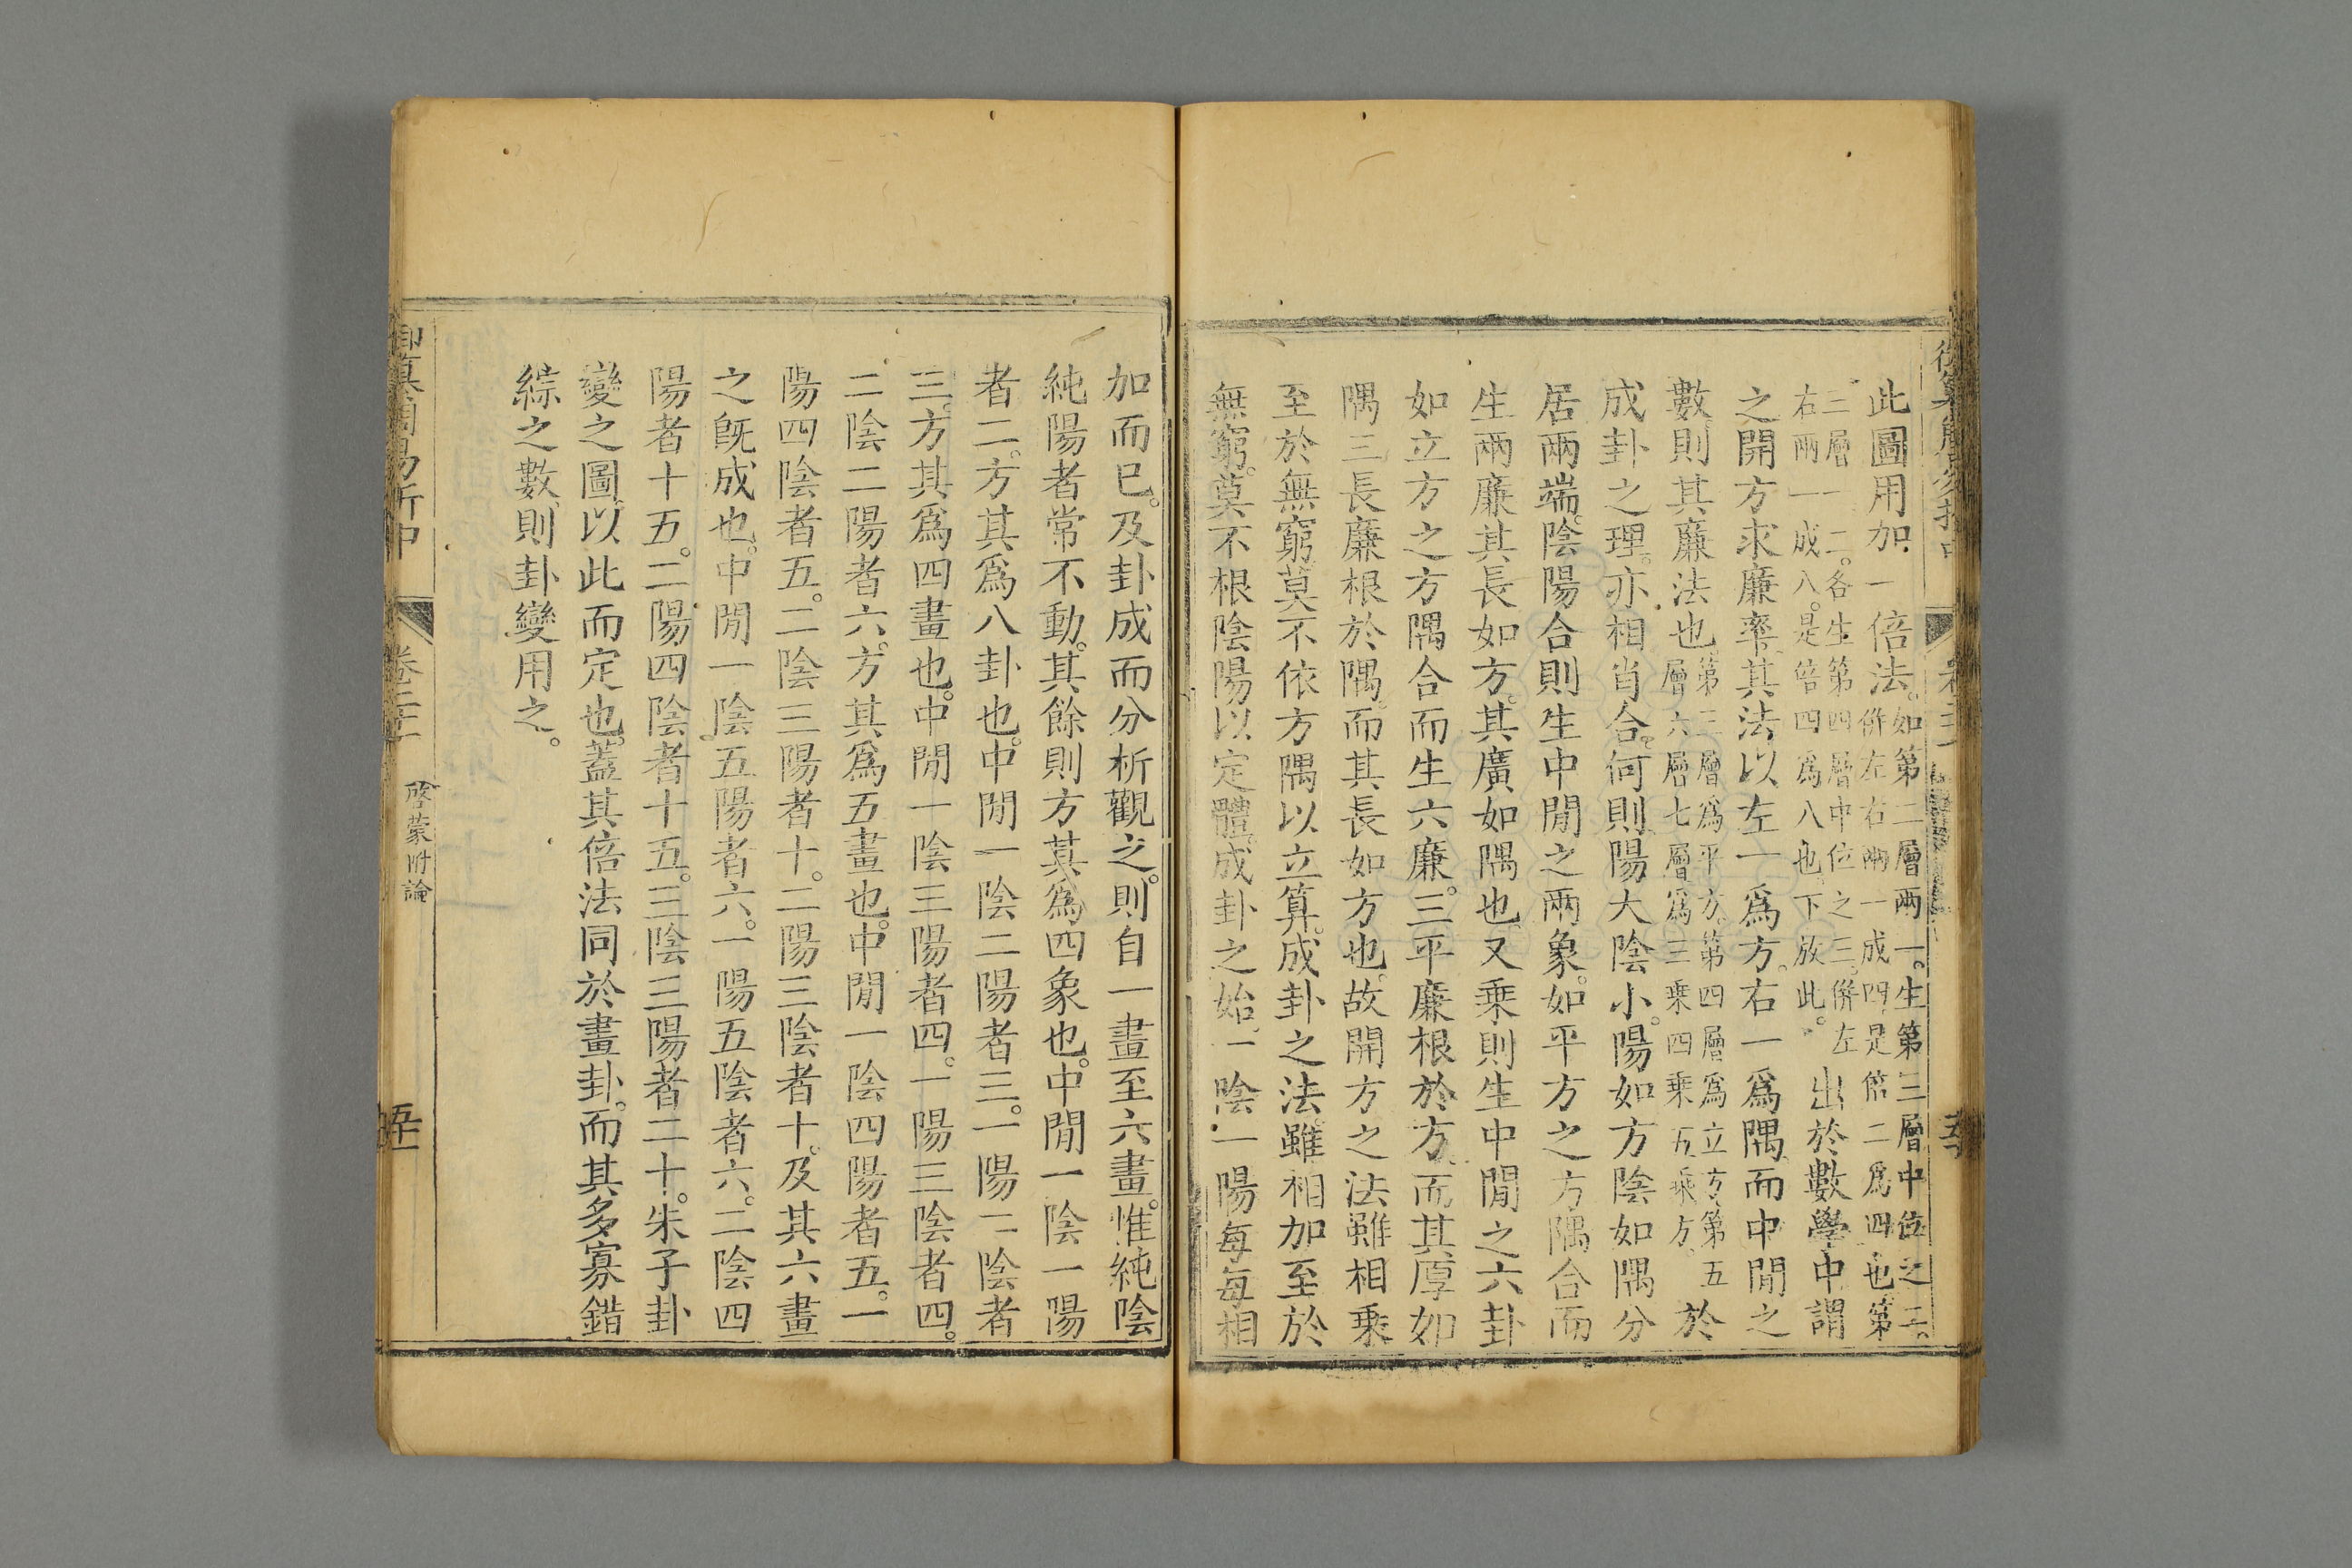 此圖用加一倍法。如第二層兩一。生第三層中位之二。
併左右兩一成四。是倍二爲四也。第
三層一二。各生第四層中位之三。併左
右兩一成八。是倍四爲八也。下放此。出於數學中謂
之開方求廉率。其法以左一爲方。右一爲隅。而中閒之
數。則其廉法也。第三層爲平方。第四層爲立方。第五
層六層七層爲三乗四乗五乗方。於
成卦之理。亦相肖合。何則。陽大陰小。陽如方。陰如隅。分
居兩端。陰陽合則生中閒之兩象。如平方之方隅合而
生兩廉。其長如方。其廣如隅也。又乗則生中閒之六卦。
如立方之方隅合而生六廉。三平廉根於方。而其厚如
隅。三長廉根於隅。而其長如方也。故開方之法。雖相乗
至於無窮。莫不依方隅以立算。成卦之法。雖相加至於
無窮。莫不根陰陽以定體。成卦之始。一陰一陽每每相
加而已。及卦成而分析觀之。則自一畫至六畫。惟純陰
純陽者常不動。其餘則方其爲四象也。中閒一陰一陽
者二。方其爲八卦也。中閒一陰二陽者三。一陽二陰者
三。方其爲四畫也。中閒一陰三陽者四。一陽三陰者四。
二陰二陽者六。方其爲五畫也。中閒一陰四陽者五。一
陽四陰者五。二陰三陽者十。二陽三陰者十。及其六畫
之旣成也。中閒一陰五陽者六。一陽五陰者六。二陰四
陽者十五。二陽四陰者十五。三陰三陽者二十。朱子卦
變之圖。以此而定也。蓋其倍法同於畫卦。而其多寡錯
綜之數。則卦變用之。
御纂周易折中
卷二十一
啓蒙附論